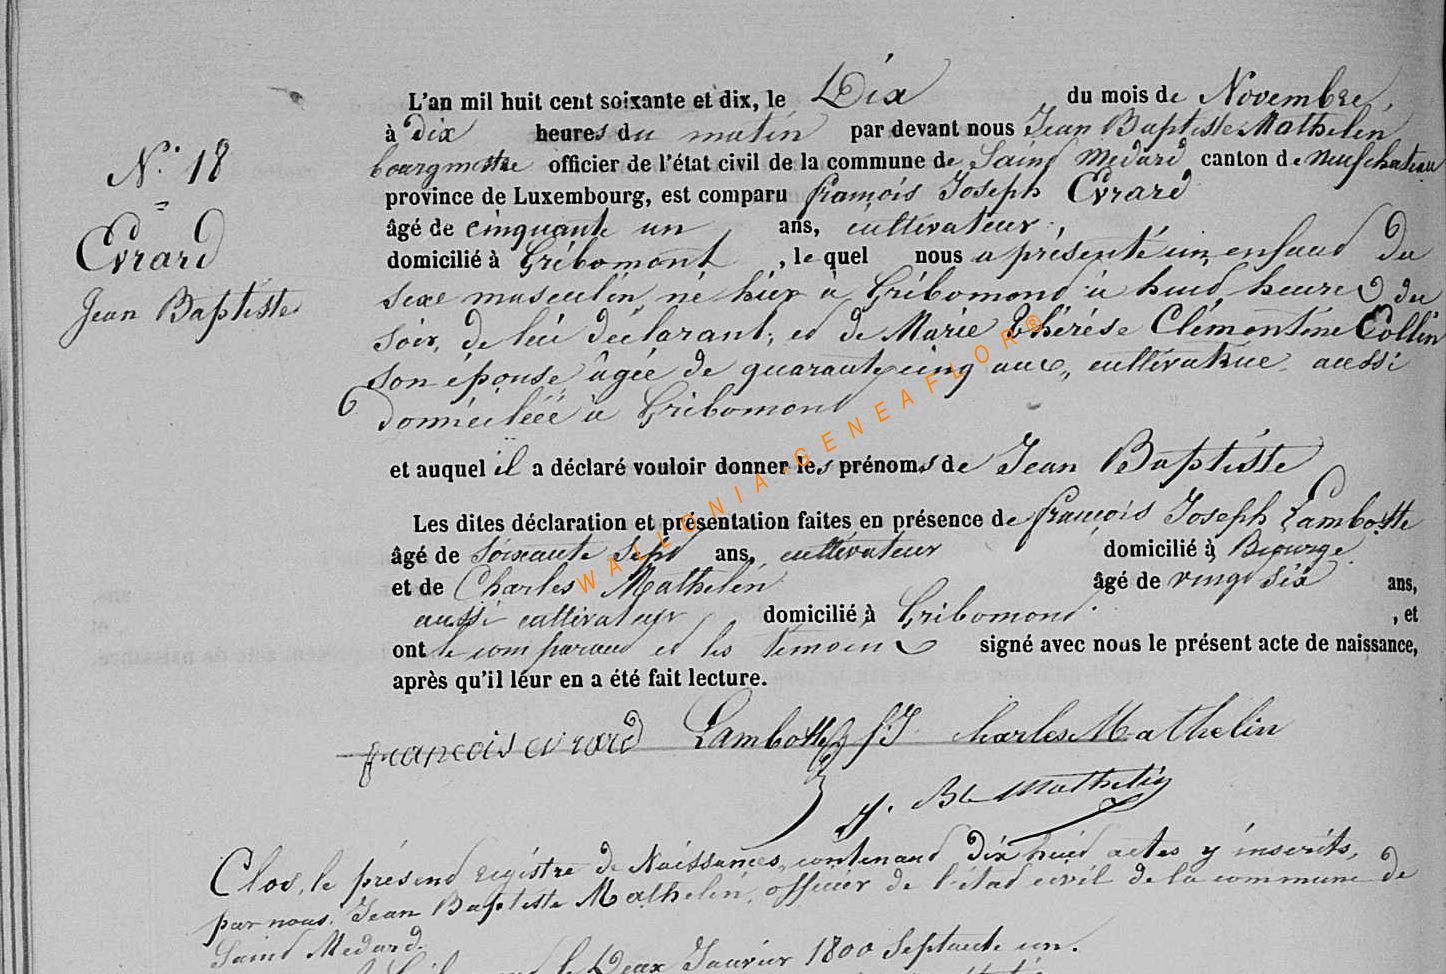 N.° 18
Evrard
Jean Baptiste
L'an mil huit cent soixante et dix, le Dix du mois de Novembre,
à dix heures du matin par devant nous Jean Baptiste Mathelin
bourgmestre officier de l'état civil de la commune de Saint Medard canton de Neufchateau
province de Luxembourg, est comparu françois Joseph Evrard
âgé de cinquante un ans, cultivateur,
domicilié à Gribomont, le quel nous a présenté un enfant du
sexe masculin né hier à Gribomont à huit heures du
soir, de lui déclarant, et de Marie Thérése Clémentine Collin
son épouse âgée de quarante cinq ans, cultivatrice aussi
domiciliée à Gribomont
et auquel il a déclaré vouloir donner les prénoms de Jean Baptiste
Les dites déclaration et présentation faites en présence de françois Joseph Lambotte
âgé de soixante sept ans, cultivateur domicilié à
et de Charles Mathelin âgé de vingt six ans,
aussi cultivateur domicilié à Gribomont, et
ont le comparant et les temoins signé avec nous le présent acte de naissance,
après qu'il léur en a été fait lecture.
francois evrard Lambotte fJ charles Mathelin
J. Bte Mathelin
Clos, le présent régistre de Naissances, contenant dix huit actes y inscrits,
par nous, Jean Baptiste Mathelin, officier de l'état civil de la commune de
Saint Medard.
le Deux Janvier 1800 Septante un.
WALLONIA-GENEAFLOR®